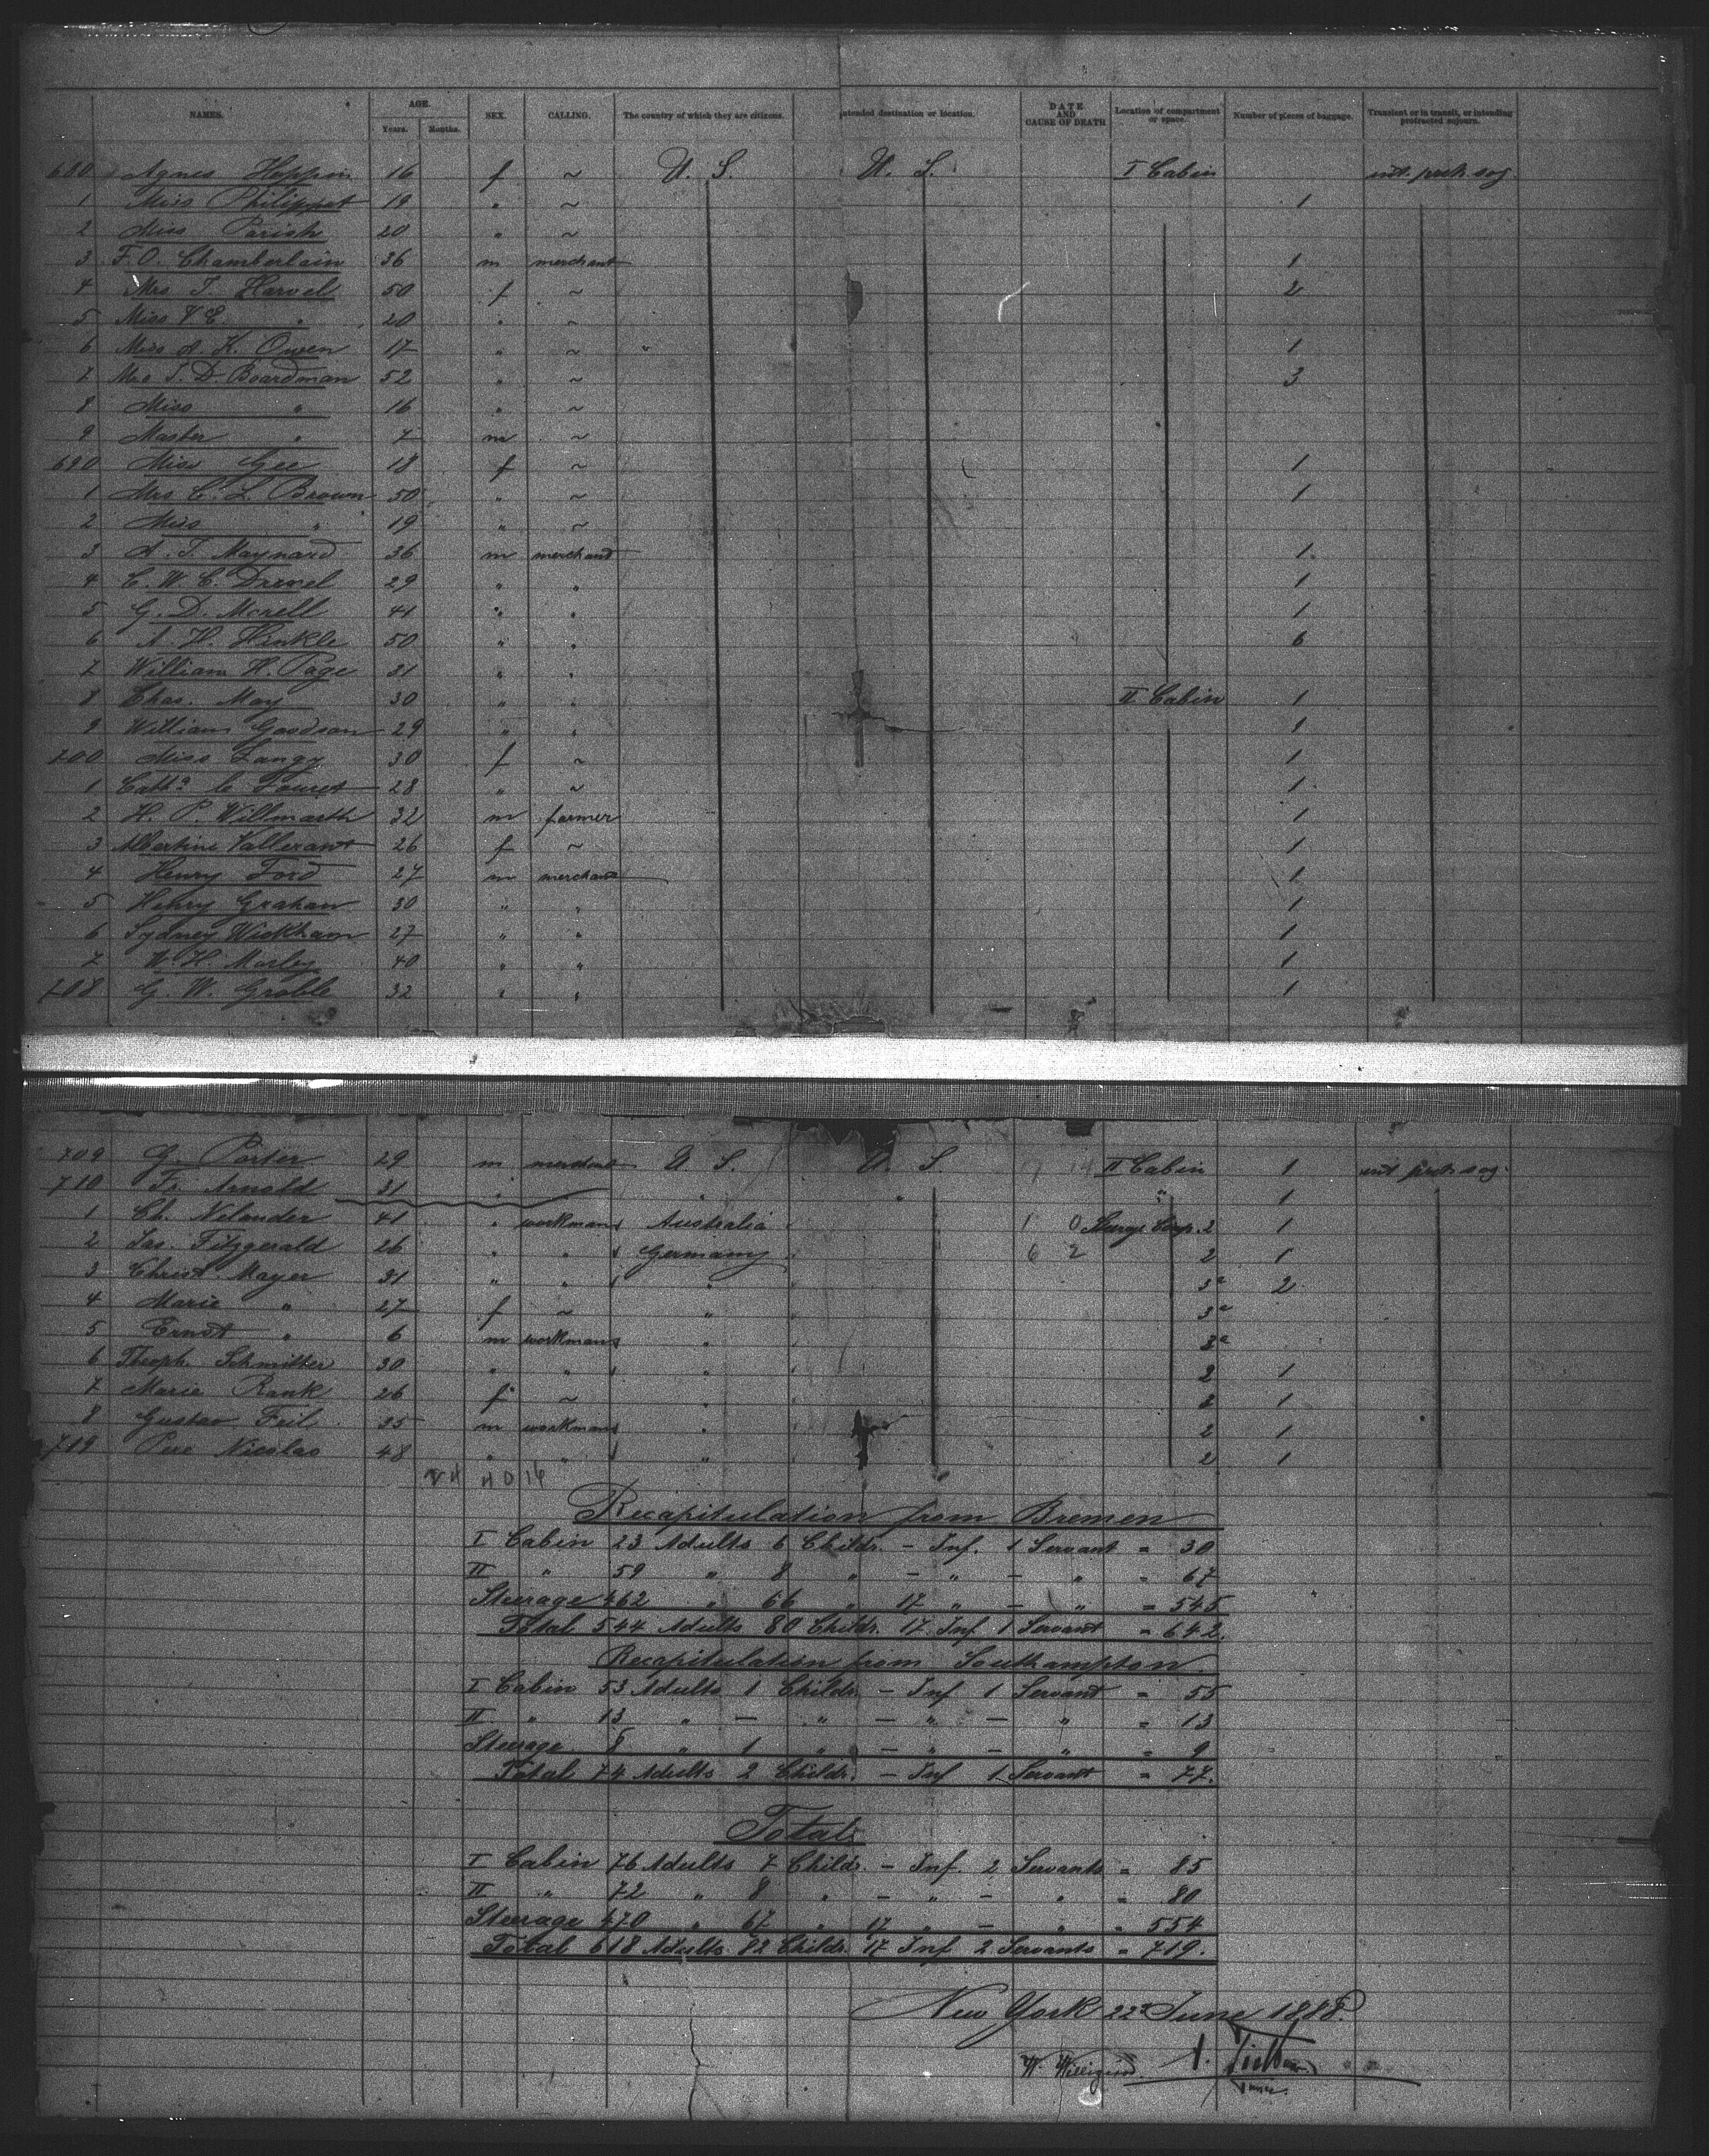 NAMES. AGE. Years. Months. SEX. CALLING. The country of which they are citizens. Intended destination or location. DATE AND CAUSE OF DEATH Location of compartment or space. Number of pieces of baggage. Transient or in transit, or intending protracted sojourn.
680 Agnes Hoppin 16 f ~ U. S. U. S. I Cabin int. prtr. soj.
1 Miss Philippet 19 " ~ 1
2 Miss Parish 20 " ~
3 F. O. Chamberlain 36 m merchant 1
4 Mrs T. Harvel 50 f ~ 2
5 Miss V E " 20 " ~
6 Miss A. K. Owen 17 " ~ 1
7 Mrs T. D. Boardman 52 " ~ 3
8 Miss " 16 " ~
9 Master " 7 m ~
690 Miss Gee 18 f ~ 1
1 Mrs C. L. Brown 50 " ~ 1
2 Miss " 19 " ~
3 A. T. Maynard 36 m merchant 1
4 C. W. C. Drexel 29 " " 1
5 G. D. Morell 41 " " 1
6 A. H. Hinkle 50 " " 6
7 William H. Page 31 " "
8 Chas. May 30 " " II Cabin 1
9 William Goodson 29 " " 1
700 Miss Langy 30 f ~ 1
1 Catha. le Fouret 28 " ~ 1
2 H. P. Willmarth 32 m farmer 1
3 Albertine Vallerant 26 f ~ 1
4 Henry Ford 27 m merchant 1
5 Henry Graham 30 " " 1
6 Sydney Wickham 27 " " 1
7 W. H. Morley 40 " " 1
708 G. W. Groble 32 " " 1
709 G. Porter 29 m merchant U. S. U. S. II Cabin 1 int. prtr. soj.
710 Fr. Arnold 31 " " " " 1
1 Ch. Nelander 41 " workman Australia 1 0 Steerge Comp. 2 1
2 Jas. Fitzgerald 26 " " Germany 6 2 2 1
3 Christ. Mayer 31 " " " 3a 2
4 Marie " 27 f ~ " 3a
5 Ernst " 6 m workman " 3a
6 Theoph. Schmitter 30 " " " 2 1
7 Marie Rank 26 f ~ " 2 1
8 Gustav Feil 35 m workman " 2 1
719 Pere Nicolas 48 " " " 2 1
Recapitulation from Bremen
I Cabin 23 Adults 6 Childr. - Inf. 1 Servant = 30
II " 59 " 8 " - " - " = 67
Steerage 462 " 66 " 17 " - " = 545
Total 544 Adults 80 Childr. 17 Inf 1 Servant = 642.
Recapitulation from Southampton
I Cabin 53 Adults 1 Childr. - Inf 1 Servant = 55
II " 13 " - " - " - " = 13
Steerage 8 " 1 " - " - " = 9
Total 74 Adults 2 Childr. - Inf 1 Servant = 77.
Total:
I Cabin 76 Adults 7 Childr. - Inf. 2 Servants = 85
II " 72 " 8 " - " - " = 80
Steerage 470 " 67 " 17 " - " = 554
Total 618 Adults 82 Childr. 17 Inf 2 Servants = 719.
New York 22d June 1888.
W. Willigerod.